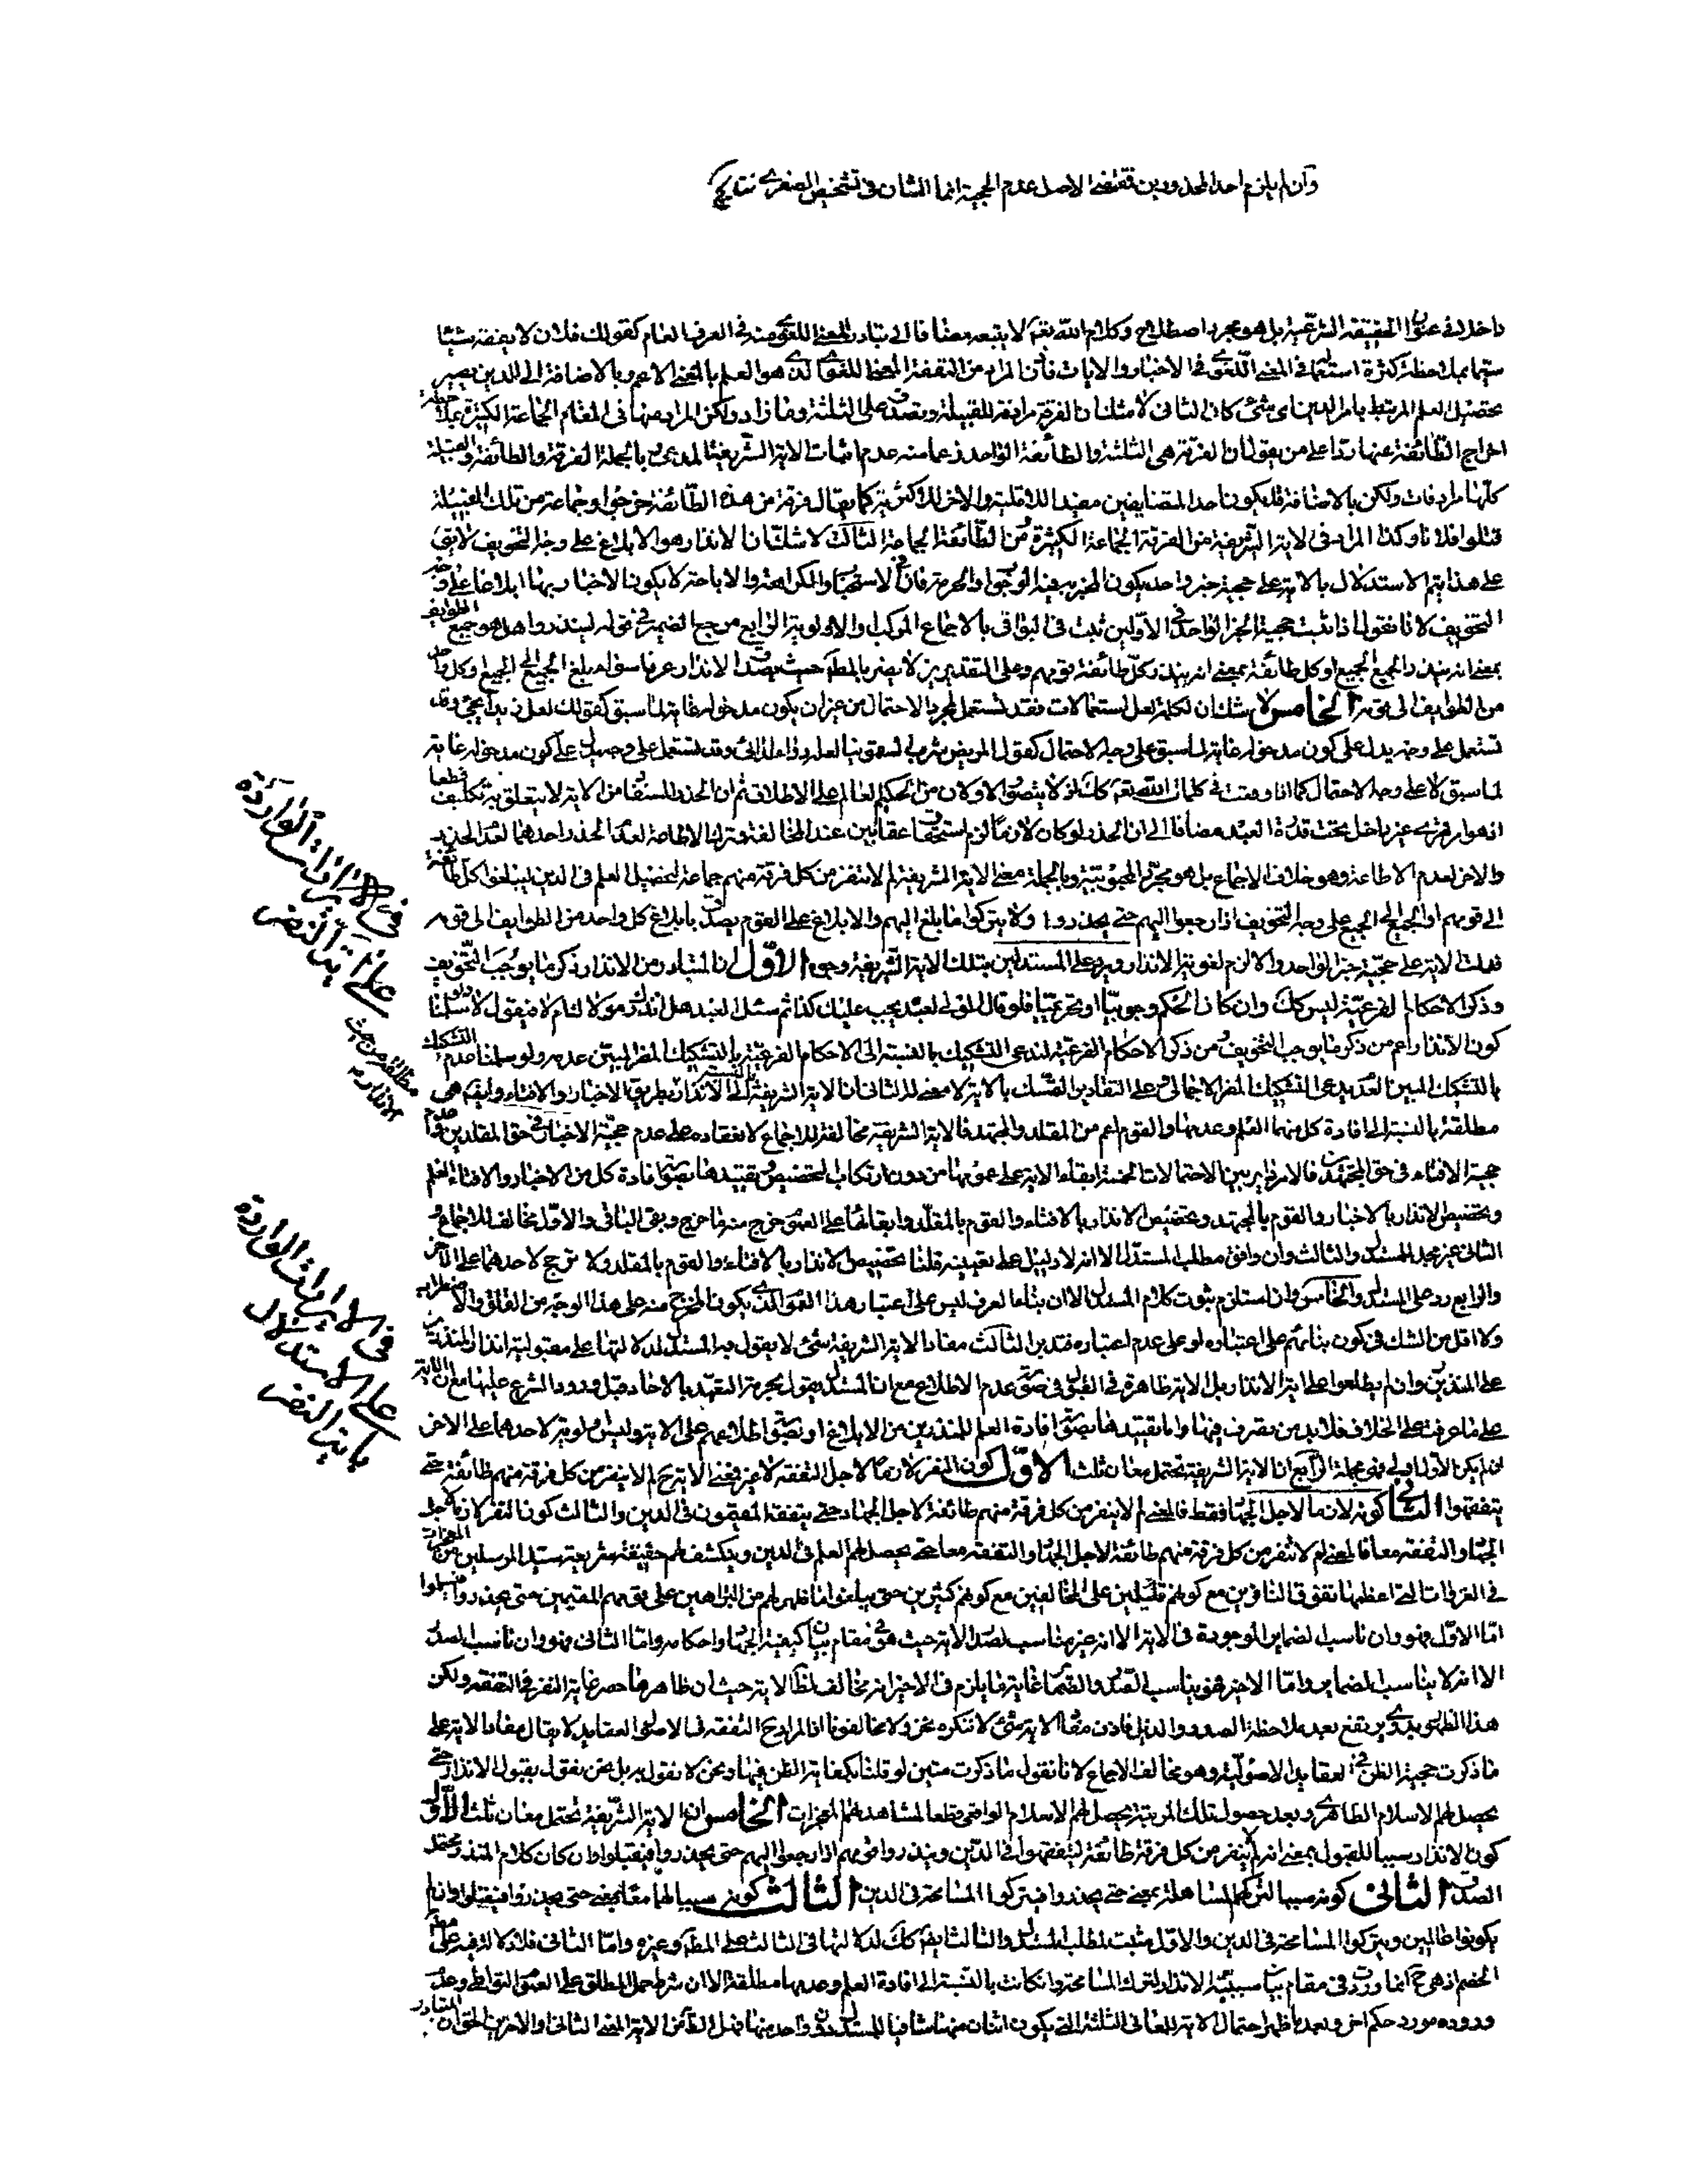 وان لم يلزم احد المحذورين فمقتضى الاصل عدم الحجية انما الشان في تشخيص الصغرى نتايج
داخلا في عنوان الحقيقة الشرعية بل هو مجرد اصطلاح وكلام الله تعـ لا يتبعه مضافا الى تبادر المعنى اللغوى منه في العرف العام كقولك فلان لا يفقه شيئا
سيما بملاحظة كثرة استعماله في المعنى اللغوى في الاخبار والايات فاذن المراد من التفقه المعنى اللغوى الذى هو العلم بالمعنى الاعم وبالاضافة الى الدين يصير
تحصيل العلم المرتبط بامر الدين اى شئ كان الثانى لا شك ان الفرقة مرادفة للقبيلة وتصدق على الثلثة وما زاد ولكن المراد منها في المقام الجماعة الكثيرة بملاحظة
اخراج الطائفة عنها ردا على من يقول ان الفرقة هى الثلثة والطائفة الواحد زعما منه عدم اثبات الاية الشريفة المدعى وبالجملة الفرقة والطائفة والقبيلة
كلها مرادفات ولكن بالاضافة قد يكون احد المتضايفين مفيدا للاقلية والاخر للاكثرية كما يقال فرقة من هذه الطائفة خرجوا وجماعة من تلك القبيلة
قتلوا فلانا وكذا المراد في الاية الشريفة من الفرقة الجماعة الكثيرة ومن الطائفة الجماعة الثالث لا شك ان الانذار هو الابلاغ على وجه التخويف لا يقـ
على هذا يتم الاستدلال بالاية على حجية خبر واحد يكون المخبر به فيه الوجوب والحرمة فان في الاستحباب والكراهة والاباحة لا يكون الاخبار بها ابلاغا على وجه
التخويف لانا نقول اذا ثبت حجية الخبر الواحد في الاولين ثبت في البواقى بالاجماع المركب والاولوية الرابع مرجع الضمير في قوله لينذروا هل هو جميع الطوايف
بمعنى انه ينذر الجميع الجميع او كل طائفة بمعنى انه ينذر كل طائفة قومهم وعلى التقديرين لا يضر بالمطلـ حيث يصدق الانذار عرفا سواء بلغ الجميع الى الجميع او كل واحد
من الطوايف الى قومه الخامس لا شك ان لكلمة لعل استعمالات فقد تستعمل لمجرد الاحتمال من غير ان يكون مدخوله غاية لما سبق كقولك لعل زيدا يجئ وقد
تستعمل على وجه يدل على كون مدخوله غاية لما سبق على وجه الاحتمال كقول المريض شربت السقمونيا لعله دواء لدائى وقد تستعمل على وجه يدل على كون مدخوله غاية
لما سبق لا على وجه الاحتمال كما اذا وقعت في كلمات الله تعـ كك اذ لا يتصور الاولان من الحكيم العالم على الاطلاق ثم ان الحذر المستفاد من الاية لا يتعلق به تكليف قطعا
اذ هو امر قهرى غير داخل تحت قدرة العبد مضافا الى ان الحذر لو كان لازما لزم استحقاق عقابين عند المخالفة وترك الاطاعة لعدم الحذر احدهما لعدم الحذر
والاخر لعدم الاطاعة وهو خلاف الاجماع بل هو مجرد المحبوبية وبالجملة معنى الاية الشريفة لم لا تنفر من كل فرقة منهم جماعة لتحصيل العلم في الدين ليبلغوا كل طائفة
الى قومهم او الجميع الى الجميع على وجه التخويف اذا رجعوا اليهم حتى يحذروا ولا يتركوا ما بلغ اليهم والابلاغ على القوم يصدق بابلاغ كل واحد من الطوايف الى قومه
فدلت الاية على حجية خبر الواحد والا لزم لغوية الانذار ويرد على المستدلين بتلك الاية الشريفة وجوه الاول ان المتبادر من الانذار ذكر ما يوجب التخويف
وذكر الاحكام الفرعية ليس كك وان كان الحكم وجوبيا او تحريميا فلو قال المولى لعبده يجب عليك كذا ثم سئل العبد هل انذرك مولاك ام لا فيقول لا ولو سلمنا
كون الانذار اعم من ذكر ما يوجب التخويف ومن ذكر الاحكام الفرعية لندعى التشكيك بالنسبة الى الاحكام الفرعية بالتشكيك المضر المبين عدمه ولو سلمنا عدم التشكيك
بالتشكيك المبين العدم يدعى التشكيك المضر الاجمالى وعلى التقادير التمسك بالاية لا معنى له الثانى ان الاية الشريفة بالنسبة الى الانذار بطريق الاخبار والافتاء وايضـ هى
مطلقة بالنسبة الى افادة كل منهما العلم وعدمها والقوم اعم من المقلد والمجتهد فالاية الشريفة مخالفة للاجماع لانعقاده على عدم حجية الاخبار في حق المقلدين وعدم
حجية الافتاء في حق المجتهدين فالامر داير بين الاحتمالات الخمسة ابقاء الاية على عمومها من دون ارتكاب التخصيص وتقييدها بصورة افادة كل من الاخبار والافتاء العلم
وتخصيص الانذار بالاخبار والقوم بالمجتهد وتخصيص الانذار بالافتاء والقوم بالمقلد وابقائها على العموم خرج منه ما خرج وبقى الباقى والاول مخالف للاجماع و
الثانى غير مجد للمستدل والثالث وان وافق مطلب المستدل الا انه لا دليل على تعيينه قلنا تخصيص الانذار بالافتاء والقوم بالمقلد ولا ترجيح لاحدهما على الاخر
والرابع رد على المستدل والخامس وان استلزم ثبوت كلام المستدل الا ان بناء العرف ليس على اعتبار هذا العموم الذى يكون المخرج منه على هذا الوجه من القلق والاضطراب
ولا اقل من الشك في كون بنائهم على اعتباره لو على عدم اعتباره فتدبر الثالث مفاد الاية الشريفة شئ لا يقول به المستدل لدلالتها على مقبولية انذار المنذرين
على المنذرين وان لم يطلعوا على اية الانذار بل الاية ظاهرة في القبول في صورة عدم الاطلاع مع ان المستدل يقول بحرمة التعبد بالاحاد قبل ورود الشرع عليها مع ان الاية
على ما عرفت على الخلاف فلا بد من تصرف فيها واما تقييدها بصورة افادة العلم للمنذرين من الابلاغ او بصورة اطلاعهم على الاية وليس اولوية لاحدهما على الاخر
ان لم يكن الاول اولى فهى مجملة الرابع ان الاية الشريفة تحتمل معان ثلث الاول كون النفر لازما لاجل التفقه لا غير فمعنى الاية ح لم لا ينفر من كل فرقة منهم طائفة حتى
يتفقهوا الثانى كونه لازما لاجل الجهاد فقط فالمعنى لم لا ينفر من كل فرقة منهم طائفة لاجل الجهاد حتى يتفقه المقيمون في الدين والثالث كون النفر لازما لاجل
الجهاد والتفقه معا فالمعنى لم لا تنفر من كل فرقة منهم طائفة لاجل الجهاد والتفقه معا حتى يحصل لهم العلم في الدين وينكشف لهم حقيقة شريعة سيد المرسلين من المعجزات
في الغزوات التى اعظمها تفوق النافرين مع كونهم قليلين على المخالفين مع كونهم كثيرين حتى يبلغوا ما ظهر لهم من البراهين على قومهم المقيمين حتى يحذروا ويسلموا
اما الاول فهو وان ناسب الضماير الموجودة في الاية الا انه غير مناسب لصدر الاية حيث هى في مقام بيان كيفية الجهاد واحكامه واما الثانى فهو وان ناسب الصدر
الا انه لا يناسب الضماير واما الاخير فهو يناسب الصدر والضماير غاية ما يلزم في الاخير انه مخالف لظاهر الاية حيث ان ظاهرها حصر غاية النفر في التفقه ولكن
هذا الظهور بدوى يرتفع بعد ملاحظة الصدر والذيل فاذن مفاد الاية شئ لا ننكره نحن ولا مخالفونا اذ المراد ح التفقه في الاصول والعقايد لا يقال مفاد الاية على
ما ذكرت حجية الظن في العقايد الاصولية وهو مخالف الاجماع لانا نقول ما ذكرت متين لو قلنا بكفاية الظن فيها ونحن لا نقول به بل نحن نقول بقبول الانذار حتى
يحصل لهم الاسلام الظاهرى وبعد حصول تلك المرتبة يحصل لهم الاسلام الواقعى قطعا لمشاهدتهم المعجزات الخامس ان الاية الشريفة تحتمل معان ثلث الاول
كون الانذار سببا للقبول بمعنى انه لم لا ينفر من كل فرقة طائفة ليتفقهوا في الدين وينذروا قومهم اذا رجعوا اليهم حتى يحذروا فيقبلوا وان كان كلام المنذر محتمل
الصدق الثانى كونه سببا لترك المساهلة بمعنى حتى يحذروا فيتركوا المسامحة في الدين الثالث كونه سببا لهما معا بمعنى حتى يحذروا فيقبلوا وان لم
يكونوا عالمين ويتركوا المسامحة في الدين والاول مثبت لمطلب المستدل والثالث ايضـ كك لدلالتها في الثالث على المطلـ وغيره واما الثانى فلا دلالة فيه على مطلب
الخصم اذ هو ح انما ورد في مقام بيان سببية الانذار لترك المسامحة وان كانت بالنسبة الى افادة العلم وعدمها مطلقة الا ان شرط حمل المطلق على العموم التواطى وعدم
وروده مورد حكم اخر وبعد ما ظهر احتمال الاية للمعانى الثلثة التى يكون اثنان منها منافيا للمستدل دون واحد منها فهل الظاهر من الاية المعنى الثانى او الاخرين الحق ان المتبادر
في الايرادات الواردة
على اية النفر
مطلقا من حيث
الانذار م
في الايرادات الواردة
على الاستدلال
باية النفر